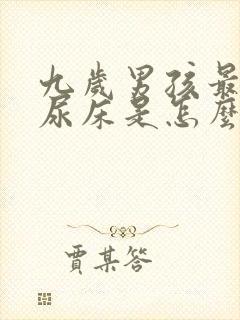 九歲男孩最
尿床是怎麼
賈某答